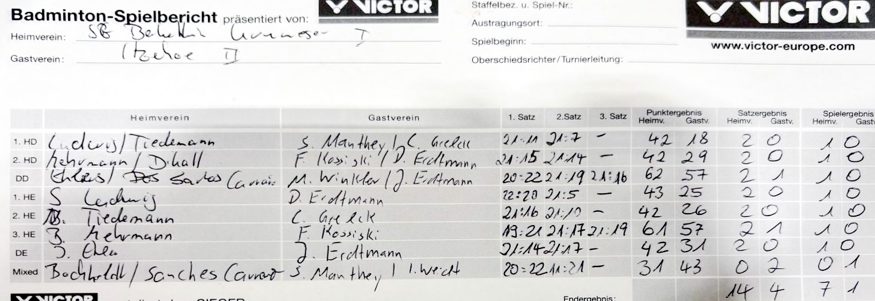 Badminton-Spielbericht präsentiert von: VICTOR
Heimverein: SG I
Gastverein: Itzehoe II
Staffelbez. u. Spiel-Nr.:
Austragungsort:
Spielbeginn:
Oberschiedsrichter/Turnierleitung:
VICTOR
www.victor-europe.com
Heimverein Gastverein 1. Satz 2.Satz 3. Satz Punktergebnis Heimv. Gastv. Satzergebnis Heimv. Gastv. Spielergebnis Heimv. Gastv.
1. HD Ludwig/Tiedemann S. Manthey/C. Grelck 21:11 21:7 – 42 18 2 0 1 0
2. HD Mehrmann/ F. Kossiski/D. Erdtmann 21:15 21:14 – 42 29 2 0 1 0
DD Ehlers/ M. Winkler/J. Erdtmann 20-22 21:19 21:16 62 57 2 1 1 0
1. HE S Ludwig D. Erdtmann 22:20 21:5 – 43 25 2 0 1 0
2. HE B. Tiedemann C. Grelck 21:16 21:10 – 42 26 2 0 1 0
3. HE B. Mehrmann F. Kossiski 19:21 21:17 21:19 61 57 2 1 1 0
DE J. Ehlers J. Erdtmann 21:14 21:17 – 42 31 2 0 1 0
Mixed Buchholdt/Sanches S. Manthey/ 20:22 11:21 – 31 43 0 2 0 1
14 4 7 1
VICTOR SIEGER Endergebnis: